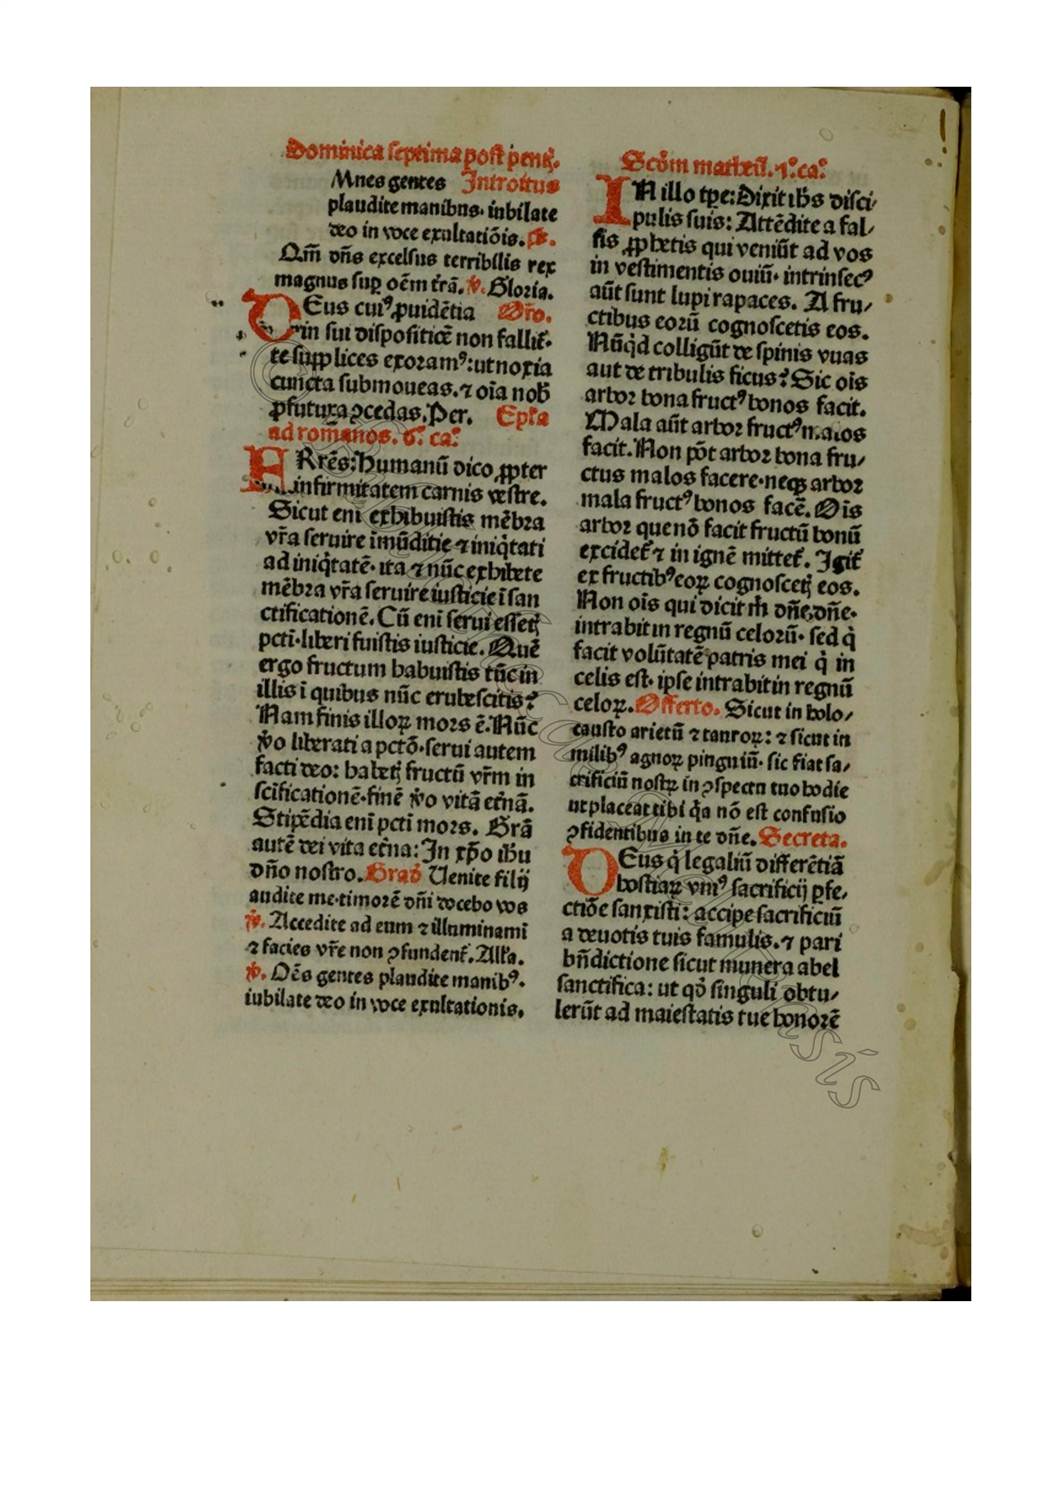 Dominica septima post pentꝭ.
Mnes gentes Introitus
plaudite manibus. iubilate
deo in voce exultatiōis. ps.
Qm̄ dn̄s excelsus terribilis rex
magnus suꝑ oēm t̄rā. v̄. Gloria.
DEus cui⁹ ꝓuidētia Or̄o.
in sui dispositiōe non fallit̄.
te supplices exoram⁹: ut noxia
cuncta submoueas. ⁊ oīa nob̄
ꝓfutura ꝯcedas. Per. Ep̄la
ad romanos. 6. ca.
FRrēs: Humanū dico ꝓpter
infirmitatem carnis vestre.
Sicut enī exhibuistis mēbra
vr̄a seruire īmūditie ⁊ iniq̇tati
ad iniq̇tatē. ita ⁊ nūc exhibete
mēbra vr̄a seruire iusticie ī san
ctificationē. Cū enī serui essetꝭ
pctī. liberi fuistis iusticie. Quē
ergo fructum habuistis tūc in
illis ī quibus nūc erubescitis?
Nam finis illoꝝ mors ē. Nūc
v̄o liberati a pctō. serui autem
facti deo: habetꝭ fructū vr̄m in
scificationē. finē v̄o vitā et̄nā.
Stipēdia enī pctī mors. Grā
autē dei vita et̄na: In xp̄o ihū
dn̄o nostro. Grad̄ Uenite filij
audite me. timorē dn̄i docebo vos
v̄. Accedite ad eum ⁊ illuminamī
⁊ facies vr̄e non ꝯfundent̄. All̄a.
v̄. Oēs gentes plaudite manib⁹.
iubilate deo in voce exultationis.
Scd̄m matheū. 7. ca.
IN illo tp̄e: Dixit ihs̄ disci/
pulis suis: Attēdite a fal/
sis ꝓphetis qui veniūt ad vos
in vestimentis ouiū. intrinsec⁹
aūt sunt lupi rapaces. A fru/
ctibus eorū cognoscetis eos.
Nūq̇d colligūt de spinis vuas
aut de tribulis ficus? Sic oīs
arbor bona fruct⁹ bonos facit.
Mala aūt arbor fruct⁹ malos
facit. Non pōt arbor bona fru/
ctus malos facere. neqꝫ arbor
mala fruct⁹ bonos facē. Oīs
arbor que nō facit fructū bonū
excidet̄ ⁊ in ignē mittet̄. Igit̄
ex fructib⁹ eoꝝ cognoscetꝭ eos.
Non oīs qui dicit m̄ dn̄e, dn̄e.
intrabit in regnū celorū. sed q̇
facit volūtatē patris mei q̇ in
celis est. ipse intrabit in regnū
celoꝝ. Offerto. Sicut in holo/
causto arietū ⁊ tauroꝝ: ⁊ sicut in
milib⁹ agnoꝝ pinguiū. sic fiat sa/
crificiū nostꝝ in ꝯspectu tuo hodie
ut placeat tibi q̇a nō est confusio
ꝯfidentibus in te dn̄e. Secreta.
DEus q̇ legaliū differētiā
hostiaꝝ vni⁹ sacrificij ꝑfe/
ctiōe sanxisti: accipe sacrificiū
a deuotis tuis famulis. ⁊ pari
bn̄dictione sicut munera abel
sanctifica: ut qd̄ singuli obtu/
lerūt ad maiestatis tue honorē